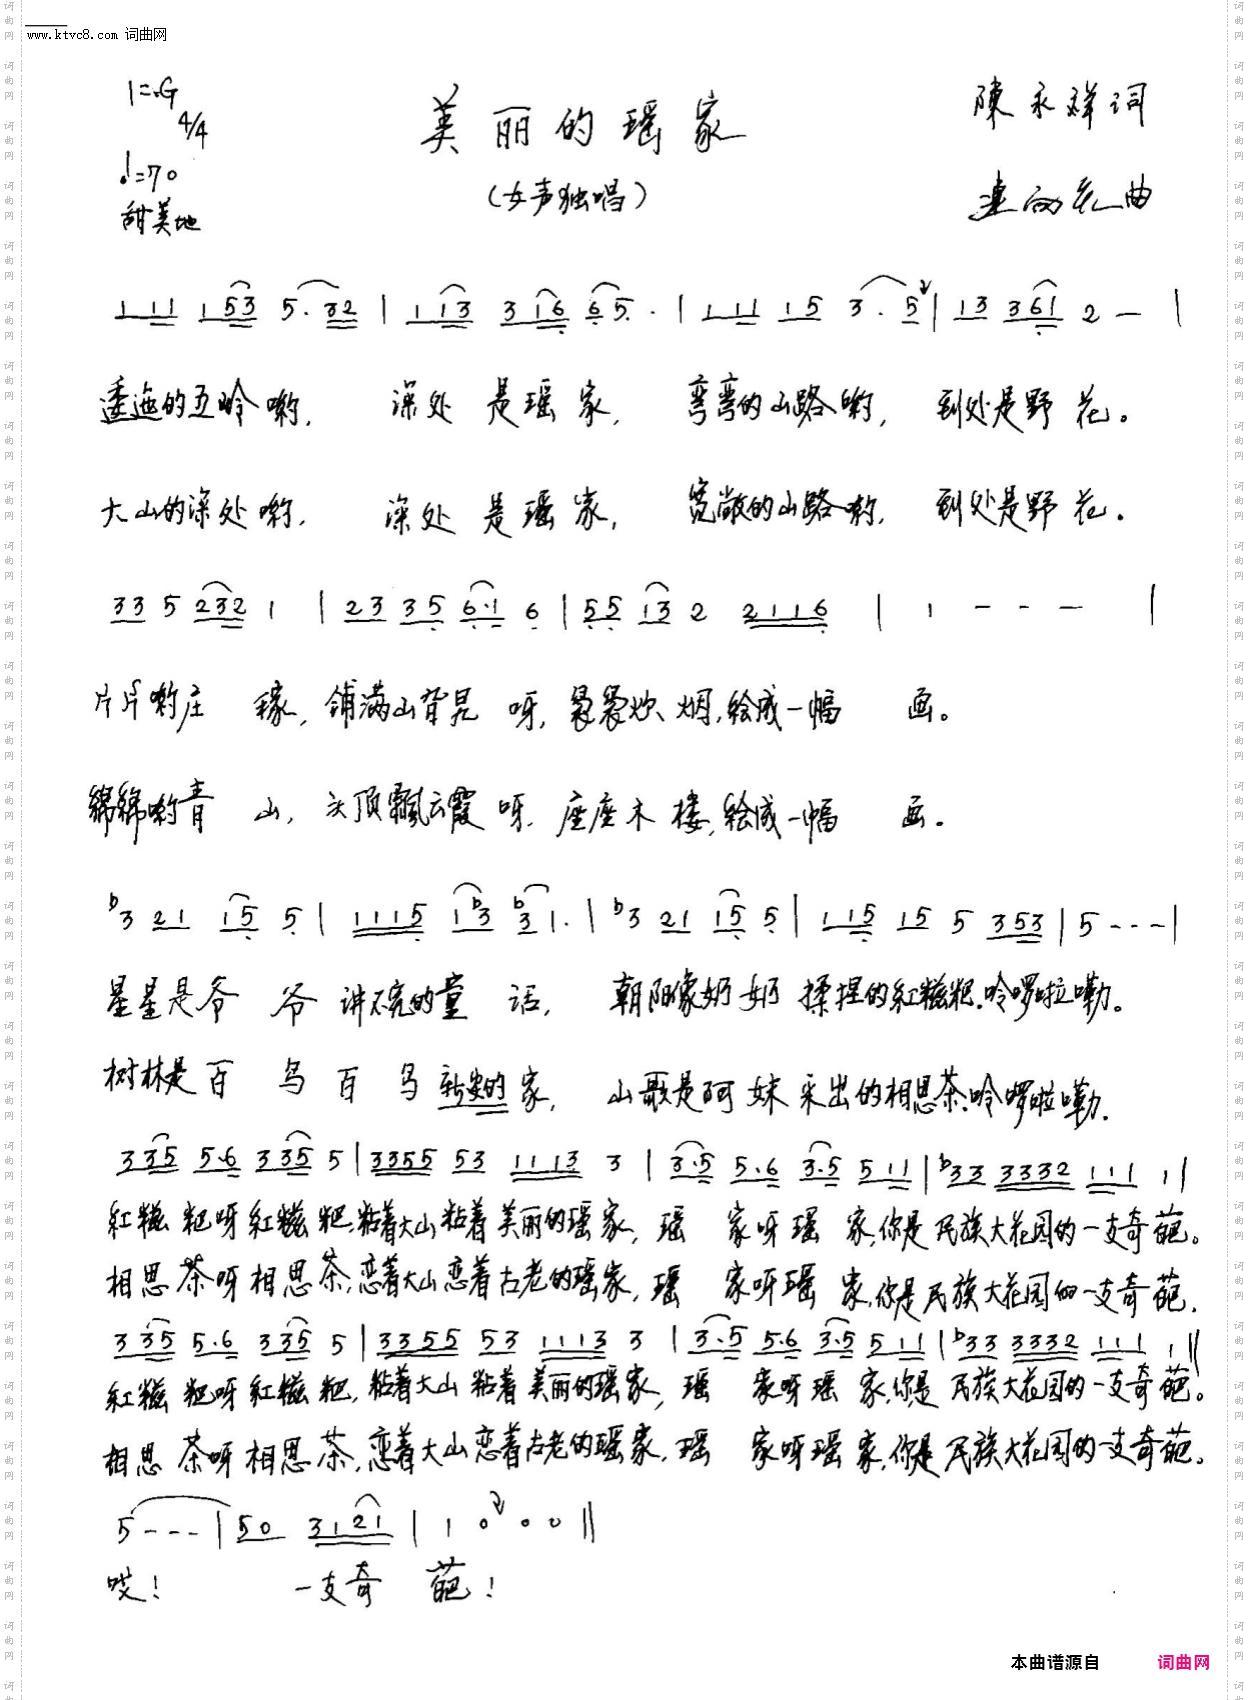 www.ktvc8.com 词曲网
1=G 4/4
美丽的瑶家
陳永祥词
♩=70
(女声独唱)
曲
甜美地
1 11 1 53 5. 32 | 1 13 3 16 65. | 1 11 15 3. 5 | 13 361 2 - |
逶迤的五岭哟, 深处是瑶家, 弯弯的山路哟, 到处是野花。
大山的深处哟, 深处是瑶家, 宽敞的山路哟, 到处是野花。
33 5 232 1 | 23 35 6·1 6 | 55 13 2 2116 | 1 - - - |
片片哟庄稼, 铺满山背晃呀, 袅袅炊烟, 绘成一幅画。
綿綿哟青山, 头顶飘云霞呀, 座座木楼, 绘成一幅画。
b3 21 15 5 | 1115 1b3 b31. | b3 21 15 5 | 115 15 5 353 | 5 - - - |
星星是爷爷讲不完的童话, 朝阳像奶奶揉捏的紅糍粑, 呤啰啦嘞。
树林是百鸟百鸟新安的家, 山歌是阿妹采出的相思茶, 呤啰啦嘞.
335 5·6 335 5 | 3355 53 1113 3 | 3·5 5·6 3·5 511 | b33 3332 111 1 ||
紅糍粑呀紅糍粑, 粘着大山粘着美丽的瑶家, 瑶家呀瑶家, 你是民族大花园的一支奇葩。
相思茶呀相思茶, 恋着大山恋着古老的瑶家, 瑶家呀瑶家, 你是民族大花园的一支奇葩.
335 5·6 335 5 | 3355 53 1113 3 | 3·5 5·6 3·5 511 | b33 3332 111 1 ||
紅糍粑呀紅糍粑, 粘着大山粘着美丽的瑶家, 瑶家呀瑶家, 你是民族大花园的一支奇葩。
相思茶呀相思茶, 恋着大山恋着古老的瑶家, 瑶家呀瑶家, 你是民族大花园的一支奇葩。
5 - - - | 50 3121 | 1 0 0 0 ||
哎! 一支奇葩!
本曲谱源自 词曲网